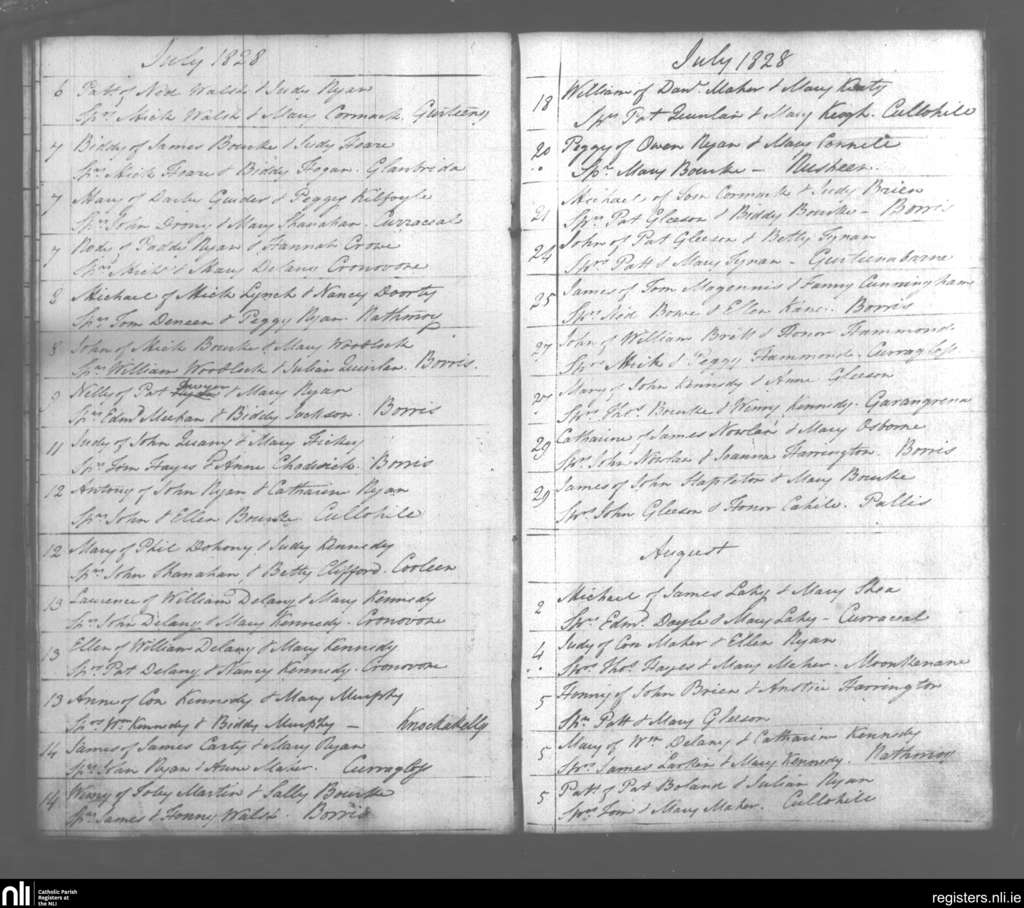 July 1828
6 Patt of Ned Walsh & Judy Ryan
Sprs Mick Walsh & Mary Cormack Guiteeny
7 Biddy of James Bourke & Judy Hoare
Sprs Mick Hoare & Biddy Hogan. Glanbrida
7 Mary of Darby Guider & Peggy Kilfoyle
Sprs John Drony & Mary Shanahan. Curraceal
7 Rody of Paddy Ryan & Hannah Crowe
Sprs Mick & Mary Delany Cronovone
8 Michael of Mick Lynch & Nancy Doorty
Sprs Tom Deneen & Peggy Ryan. Rathmoy
8 John of Mick Bourke & Mary Woodlock
Sprs William Woodlock & Julian Quinlan. Borris.
9 Nelly of Pat Dwyer & Mary Ryan
Sprs Edmd Meehan & Biddy Jackson. Borris
11 Judy of John Quany & Mary Hickey
Sprs Tom Hayes & Anne Chadwick. Borris
12 Antony of John Ryan & Catharien Ryan
Sprs John & Ellen Bourke. Cullohill
12 Mary of Phil Dohony & Judy Kennedy
Sprs John Shanahan & Betty Clifford. Cooleen
13 Laurence of William Delany & Mary Kennedy
Sprs John Delany & Mary Kennedy. Cronovone
13 Ellen of William Delany & Mary Kennedy
Sprs Pat Delany & Nancy Kennedy. Cronovone
13 Anne of Con Kennedy & Mary Murphy
Sprs Wm Kennedy & Biddy Murphy — Knockakelly
14 James of James Carty & Mary Ryan
Sprs John Ryan & Anne Maher. Curragloss
14 Winny of Toby Martin & Sally Bourke
Sprs James & Honny Walsh. Borris
July 1828
18 William of Danl Maher & Mary Keaty
Sprs Pat Quinlan & Mary Keogh. Cullohill
20 Peggy of Owen Ryan & Mary Connell
Spr Mary Bourke — Rusheen.
21 Michael of Tom Cormack & Judy Brien
Sprs Pat Gleeson & Biddy Bourke — Borris
24 John of Pat Gleeson & Betty Tynan
Sprs Patt & Mary Tynan —
25 James of Tom Magennis & Fanny Cunningham
Sprs Ned Bowe & Ellen Kane. Borris
27 John of William Brett & Honor Hammond.
Sprs Mick & Peggy Hammond. Curragloss
27 Mary of John Kennedy & Anne Gleeson
Sprs Thos Bourke & Winny Kennedy. Garangrena
29 Catharine of James Nowlan & Mary Osborne
Sprs John Nowlan & Joanna Harrington. Borris
29 James of John Stapleton & Mary Bourke
Sprs John Gleeson & Honor Cahill. Pallis
August
2 Michael of James Lahy & Mary Shea
Sprs Edmd Doyle & Mary Lahy — Curraceal
4 Judy of Con Maher & Ellen Ryan
Sprs Thos Hayes & Mary Maher. Moonkenane
5 Honny of John Brien & Anstie Harrington
Sprs Patt & Mary Gleeson
5 Mary of Wm Delany & Catharien Kennedy
Sprs James Larkin & Mary Kennedy. Rathmoy
5 Patt of Pat Boland & Julian Ryan
Sprs Tom & Mary Maher. Cullohill
nli Catholic Parish
Registers at
the NLI
registers.nli.ie